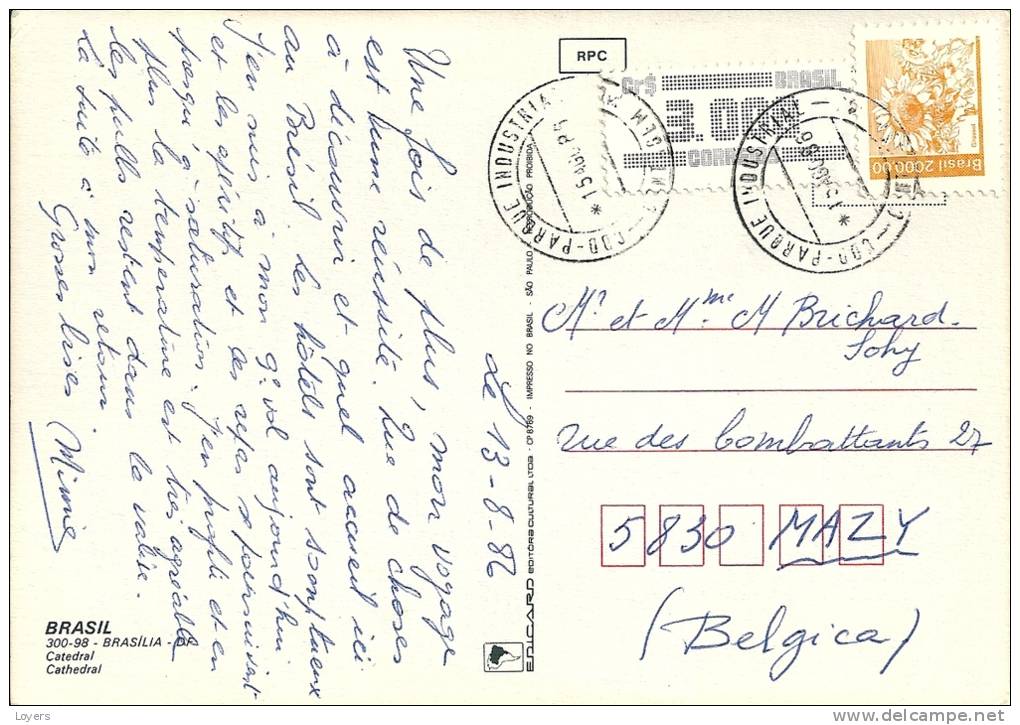 Le 13-8-86
Une fois de plus, mon voyage
est une réussite. Que de choses
à découvrir et quel accueil ici
au Brésil. Les hôtels sont somptueux
J'en suis à mon 9e vol aujourd'hui
et les apéritifs et les repas se poursuivent
presqu'à saturation. J'en profite et en
plus la température est très agréable
les pulls restent dans la valise.
La suite à mon retour
Grosses bises Mimie
BRASIL
300-98 - BRASÍLIA - DF
Catedral
Cathedral
EDICARD EDITÔRA CULTURAL LTDA - CP 8789 - IMPRESSO NO BRASIL - SÃO PAULO - REPRODUÇÃO PROIBIDA
RPC
Cr$ BRASIL
3.00
CORREIOS
Brasil 2000,00
Girassol
PARQUE INDUSTRIAL
15 AGO
PARQUE INDUSTRIAL
15 AGO 86
Mr et Mme M Brichard-
Sohy
rue des Combattants 27
5830 MAZY
(Belgica)
Loyers
delcampe.net